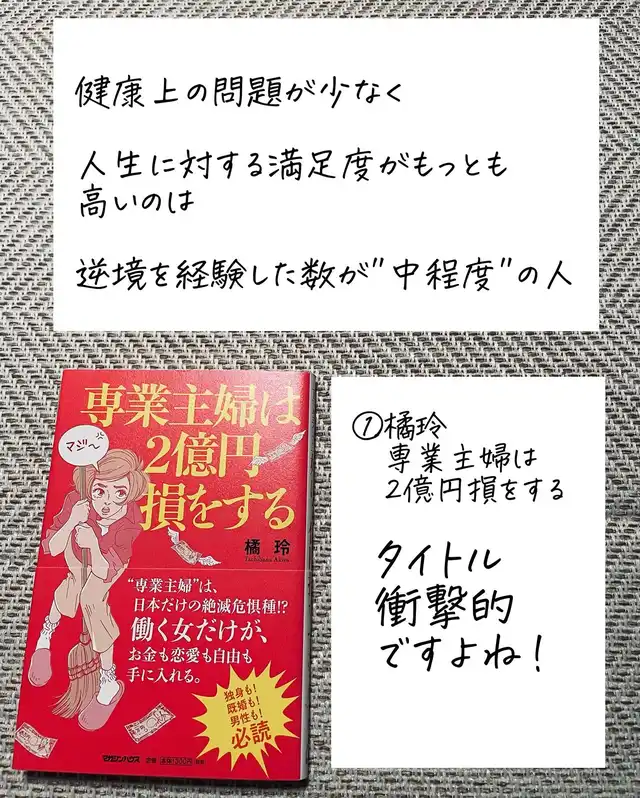 健康上の問題が少なく
人生に対する満足度がもっとも
高いのは
逆境を経験した数が"中程度"の人
専業主婦は
2億円
損をする
マジ〜
橘 玲
Tachibana Akira
"専業主婦"は、
日本だけの絶滅危惧種!?
働く女だけが、
お金も恋愛も自由も
手に入れる。
独身も!
既婚も!
男性も!
必読
マガジンハウス
①橘玲
専業主婦は
2億円損をする
タイトル
衝撃的
ですよね!